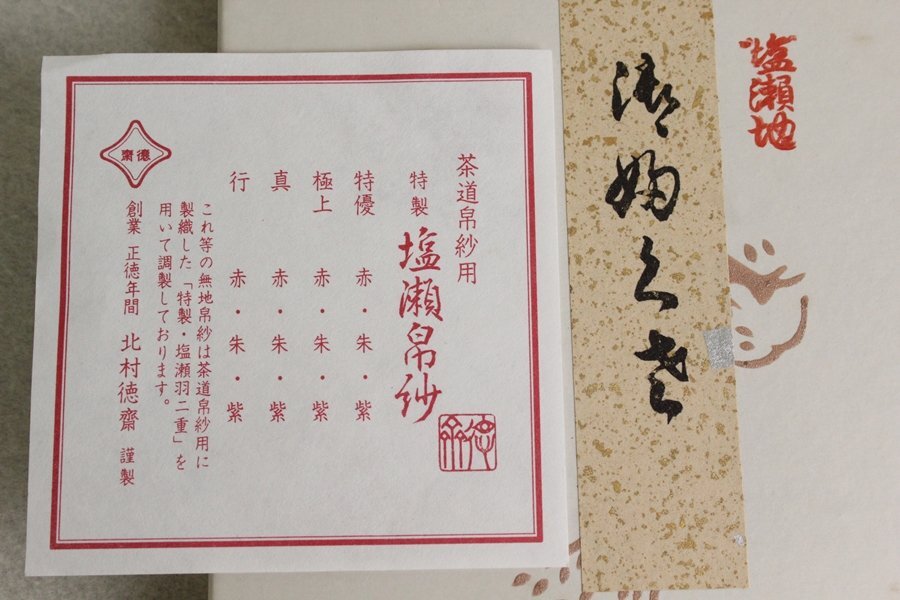 塩瀬地
御ふくさ
茶道帛紗用
特製 塩瀬帛紗
特優 赤・朱・紫
極上 赤・朱・紫
真 赤・朱・紫
行 赤・朱・紫
これ等の無地帛紗は茶道帛紗用に
製織した「特製・塩瀬羽二重」を
用いて調製しております。
創業 正徳年間 北村徳齋 謹製
德齋